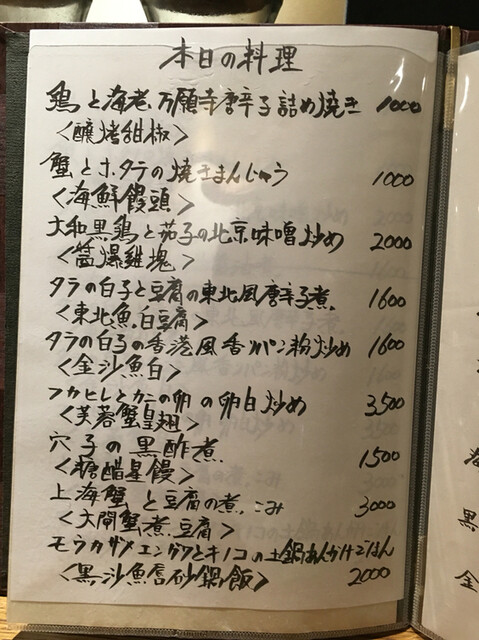 本日の料理
鶏と海老、万願寺唐辛子詰め焼き 1000
<醸烤甜椒>
蟹とホタテの焼きまんじゅう 1000
<海鮮饅頭>
大和黒鶏と茄子の北京味噌炒め 2000
<醤爆雞塊>
タラの白子と豆腐の東北風唐辛子煮 1600
<東北魚白豆腐>
タラの白子の香港風香りパン粉炒め 1600
<金沙魚白>
フカヒレとカニの卵の卵白炒め 3500
<芙蓉蟹皇翅>
穴子の黒酢煮 1500
<糖醋星鰻>
上海蟹と豆腐の煮こみ 3000
<大閘蟹煮豆腐>
モウカザメエンガワとキノコの土鍋あんかけごはん
<黒沙魚唇砂鍋飯> 2000
黒
金